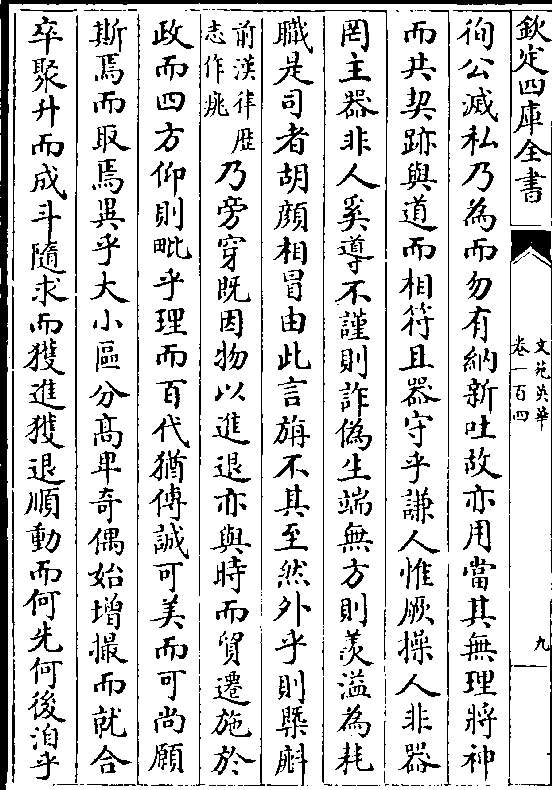 欽定四庫全書
文苑英華
卷一百四
九
徇公滅私乃為而勿有納新吐故亦用當其無理將神
而共契跡與道而相符且器守乎謙人惟厥操人非器
罔主器非人奚導不謹則詐偽生端無方則羨溢為耗
職是司者胡顔相冒由此言旃不其至然外乎則㮣斛
前漢律歴
志作庣
乃旁穿既因物以進退亦與時而貿遷施於
政而四方仰則毗乎理而百代猶傳誠可美而可尚願
斯焉而取焉異乎大小區分髙卑奇偶始増撮而就合
卒聚升而成斗隨求而獲進獲退順動而何先何後洎乎